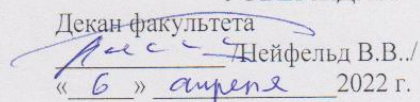 Декан факультета
/Нейфельд В.В../
« 6 » апреля 2022 г.